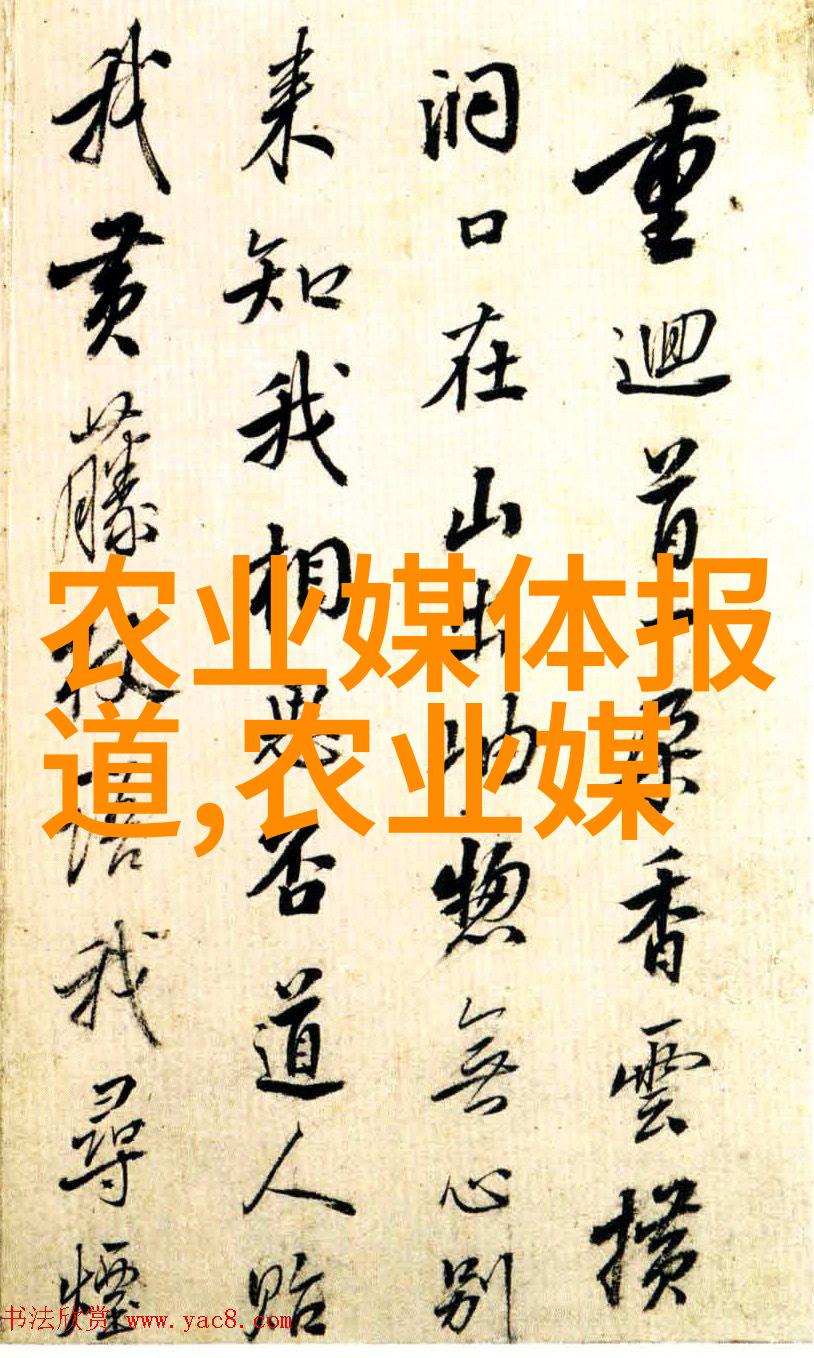 重迴首一朵香雲
洞口在山出岫惣無心别
来知我相思否道人貽
我黄藤杖我尋煙
农业媒体报
道,农业媒
书法欣赏 www.yac8.com